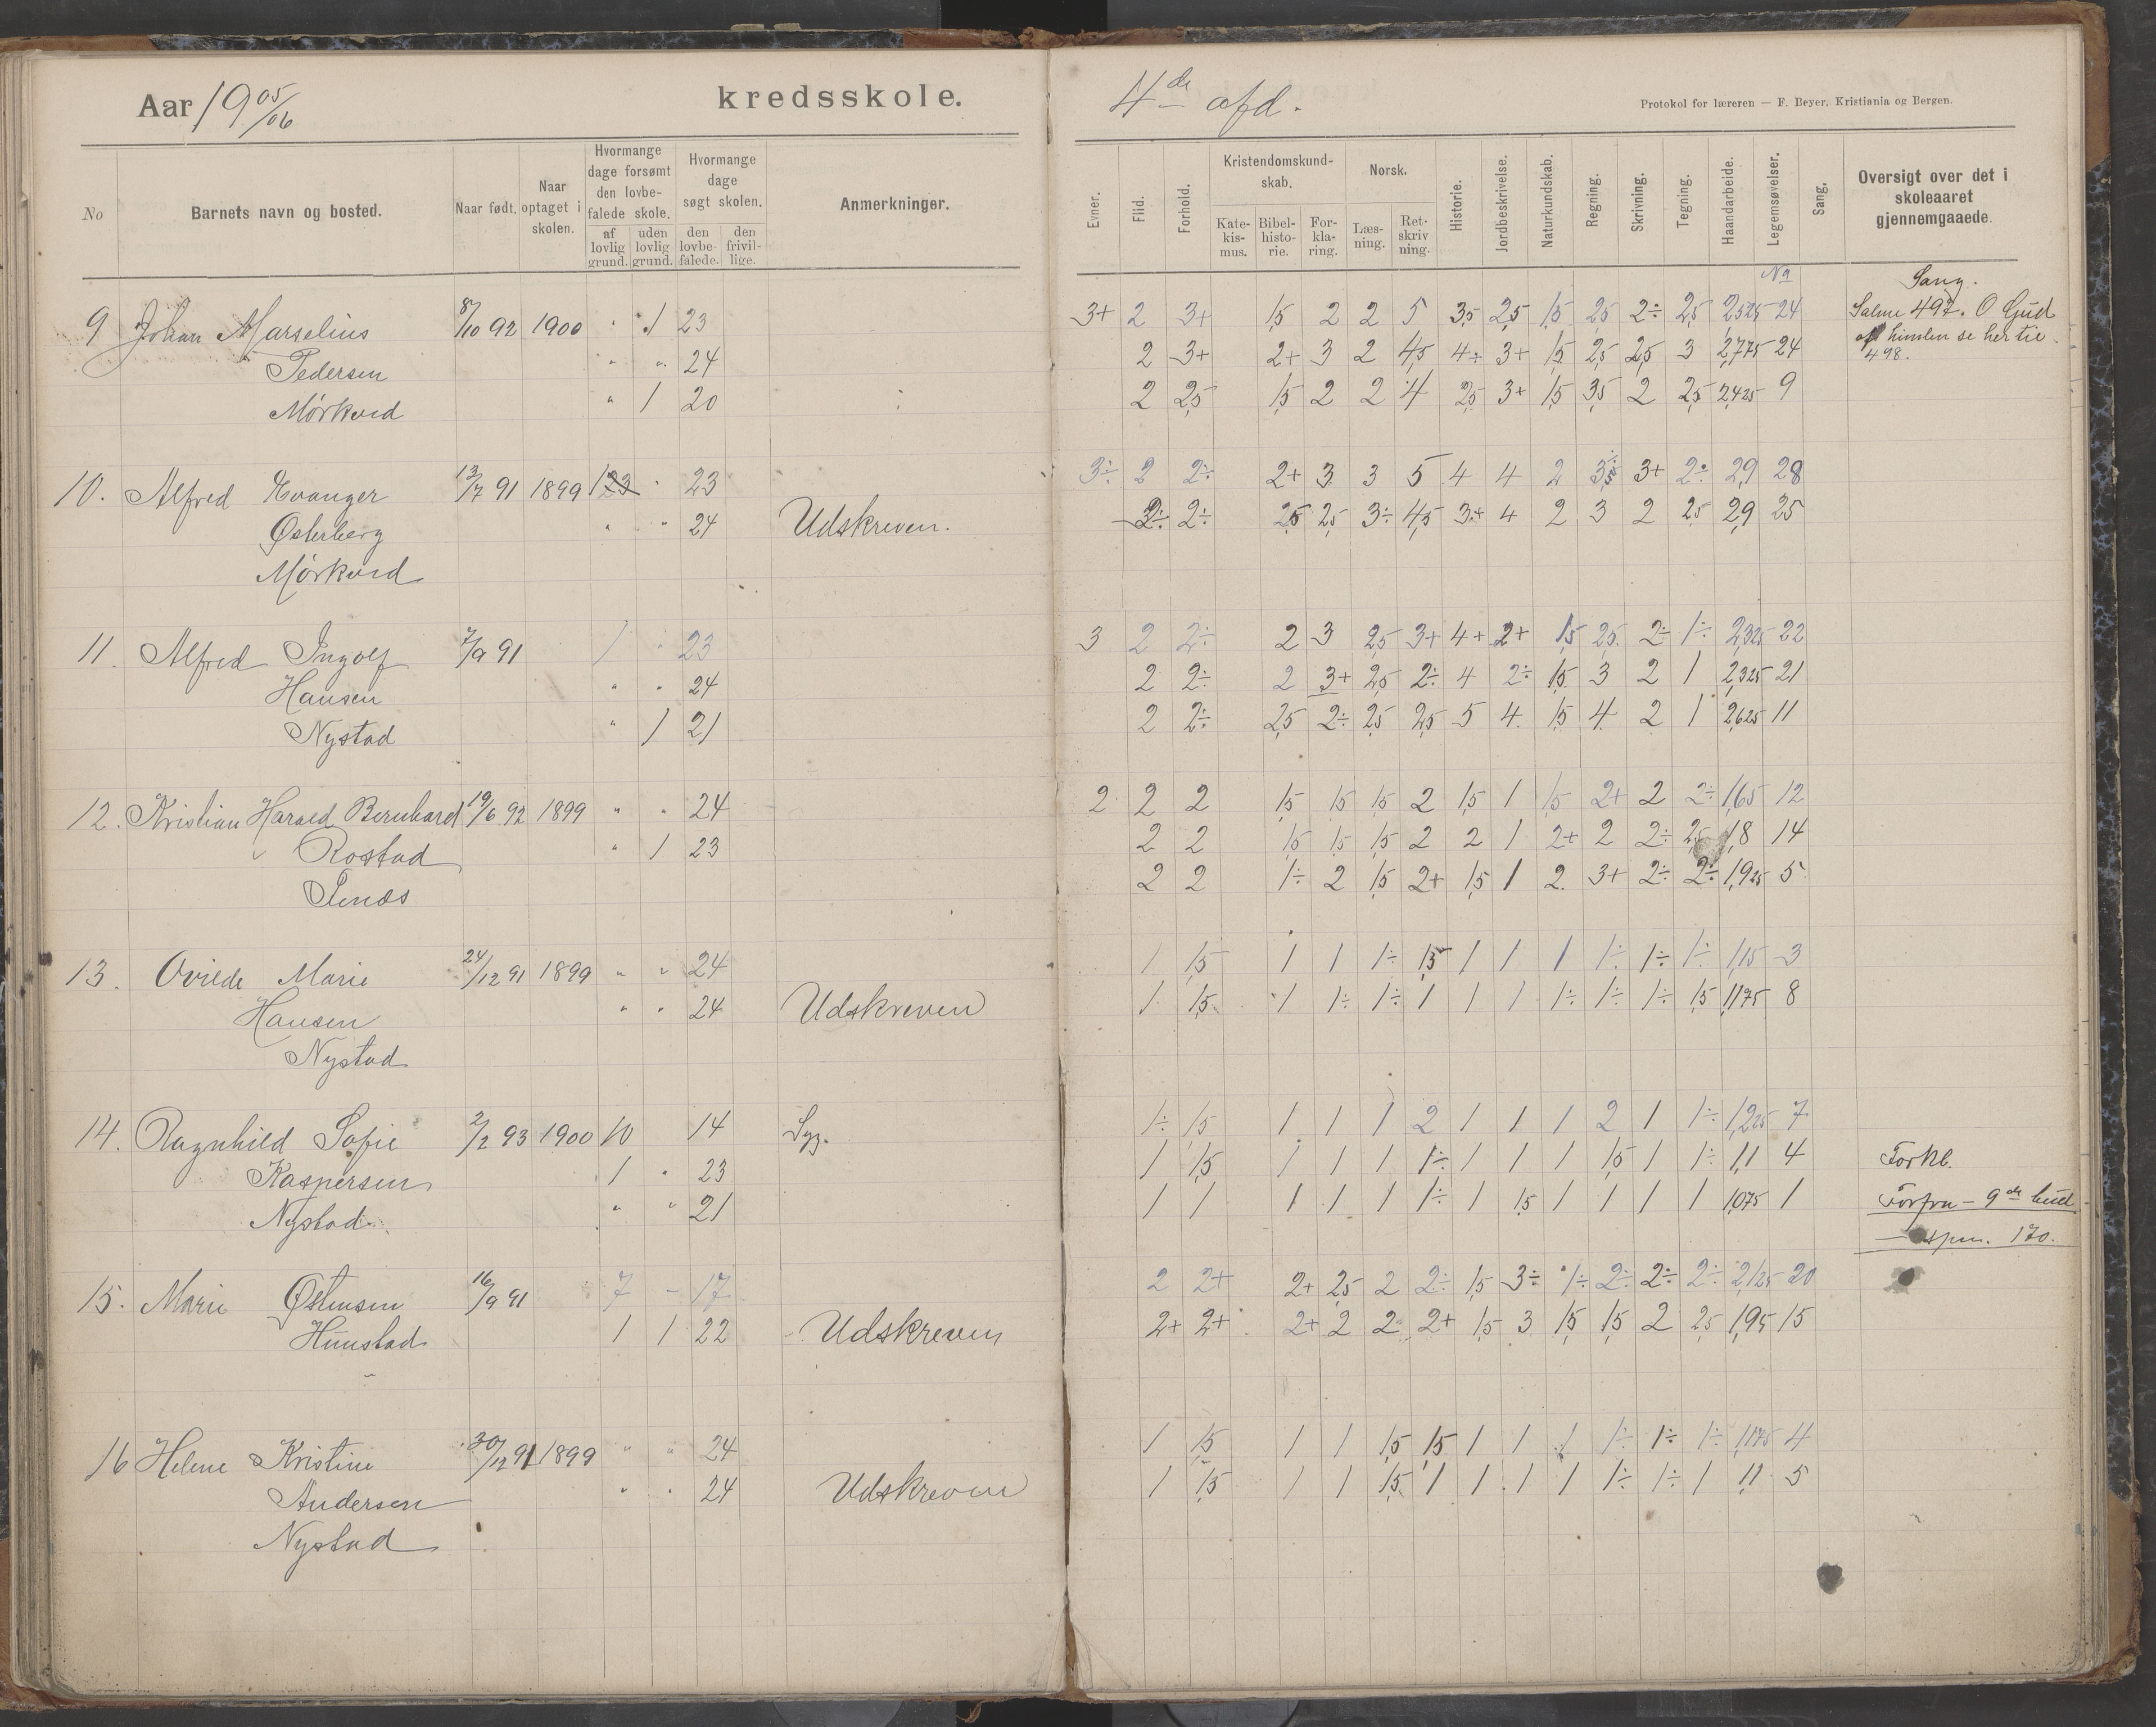 Aar 1905/06 kredsskole.
No Barnets navn og bosted. Naar født. Naar optaget i skolen. Hvormange dage forsømt den lovbefalede skole. af lovlig grund. uden lovlig grund. Hvormange dage søgt skolen. den lovbefalede. den frivillige. Anmerkninger.
9 Johan Marselius 8/10 92 1900 " 1 23
Pedersen " " 24
Mørkved " 1 20
10. Alfred Evanger 13/7 91 1899 1 " 23
Østerberg " " 24 Udskreven.
Mørkved
11. Alfred Ingolf 7/9 91 1 " 23
Hansen " " 24
Nystad " 1 21
12. Kristian Harald Bernhard 19/6 92 1899 " " 24
Rostad " 1 23
13. Ovilde Marie 24/12 91 1899 " " 24
Hansen " " 24 Udskreven
Nystad
14. Ragnhild Sofie 2/2 93 1900 10 14 Syg.
Kaspersen 1 " 23
Nystad " " 21
15. Marie Østensen 16/9 91 7 - 17
Hunstad 1 1 22 Udskreven
16 Helene Kristine 30/12 91 1899 " " 24
Andersen " " 24 Udskreven
Nystad
4de afd.
Protokol for læreren — F. Beyer, Kristiania og Bergen.
Evner. Flid. Forhold. Kristendomskundskab. Katekismus. Bibelhistorie. Forklaring. Norsk. Læsning. Retskrivning. Historie. Jordbeskrivelse. Naturkundskab. Regning. Skrivning. Tegning. Haandarbeide. Legemsøvelser. Sang. Oversigt over det i skoleaaret gjennemgaaede.
No Sang.
3+ 2 3+ 1,5 2 2 5 3,5 2,5 1,5 2,5 2÷ 2,5 2,525 24 Salme 497. O Gud
2 3+ 2+ 3 2 4,5 4÷ 3+ 1,5 2,5 2,5 3 2,775 24 af himlen se hertil.
498.
2 2,5 1,5 2 2 4 2,5 3+ 1,5 3,5 2 2,5 2,425 9
3÷ 2 2÷ 2+ 3 3 5 4 4 2 3,5 3+ 2÷ 2,9 28
2÷ 2÷ 2,5 2,5 3÷ 4,5 3+ 4 2 3 2 2,5 2,9 25
3 2 2÷ 2 3 2,5 3+ 4+ 2+ 1,5 2,5 2÷ 1÷ 2,325 22
2 2÷ 2 3+ 2,5 2÷ 4 2÷ 1,5 3 2 1 2,325 21
2 2÷ 2,5 2÷ 2,5 2,5 5 4 1,5 4 2 1 2,625 11
2 2 2 1,5 1,5 1,5 2 1,5 1 1,5 2+ 2 2÷ 1,65 12
2 2 1,5 1,5 1,5 2 2 1 2+ 2 2÷ 2,5 1,8 14
2 2 1÷ 2 1,5 2+ 1,5 1 2 3+ 2÷ 2÷ 1,925 5
1 1,5 1 1 1÷ 1,5 1 1 1 1÷ 1÷ 1÷ 1,15 3
1 1,5 1 1÷ 1÷ 1 1 1 1÷ 1÷ 1÷ 1,5 1,175 8
1÷ 1,5 1 1 1 2 1 1 1 2 1 1÷ 1,225 7
1 1,5 1 1 1 1÷ 1 1 1 1,5 1 1÷ 1,1 4 Forkl.
1 1 1 1 1 1÷ 1 1,5 1 1 1 1 1,075 1 Forfra - 9de bud
- spm. 170.
2 2+ 2+ 2,5 2 2÷ 1,5 3÷ 1÷ 2÷ 2÷ 2÷ 2,125 20
2+ 2+ 2+ 2 2 2+ 1,5 3 1,5 1,5 2 2,5 1,95 15
1 1,5 1 1 1,5 1,5 1 1 1 1÷ 1÷ 1÷ 1,175 4
1 1,5 1 1 1,5 1 1 1 1 1÷ 1÷ 1 1,1 5